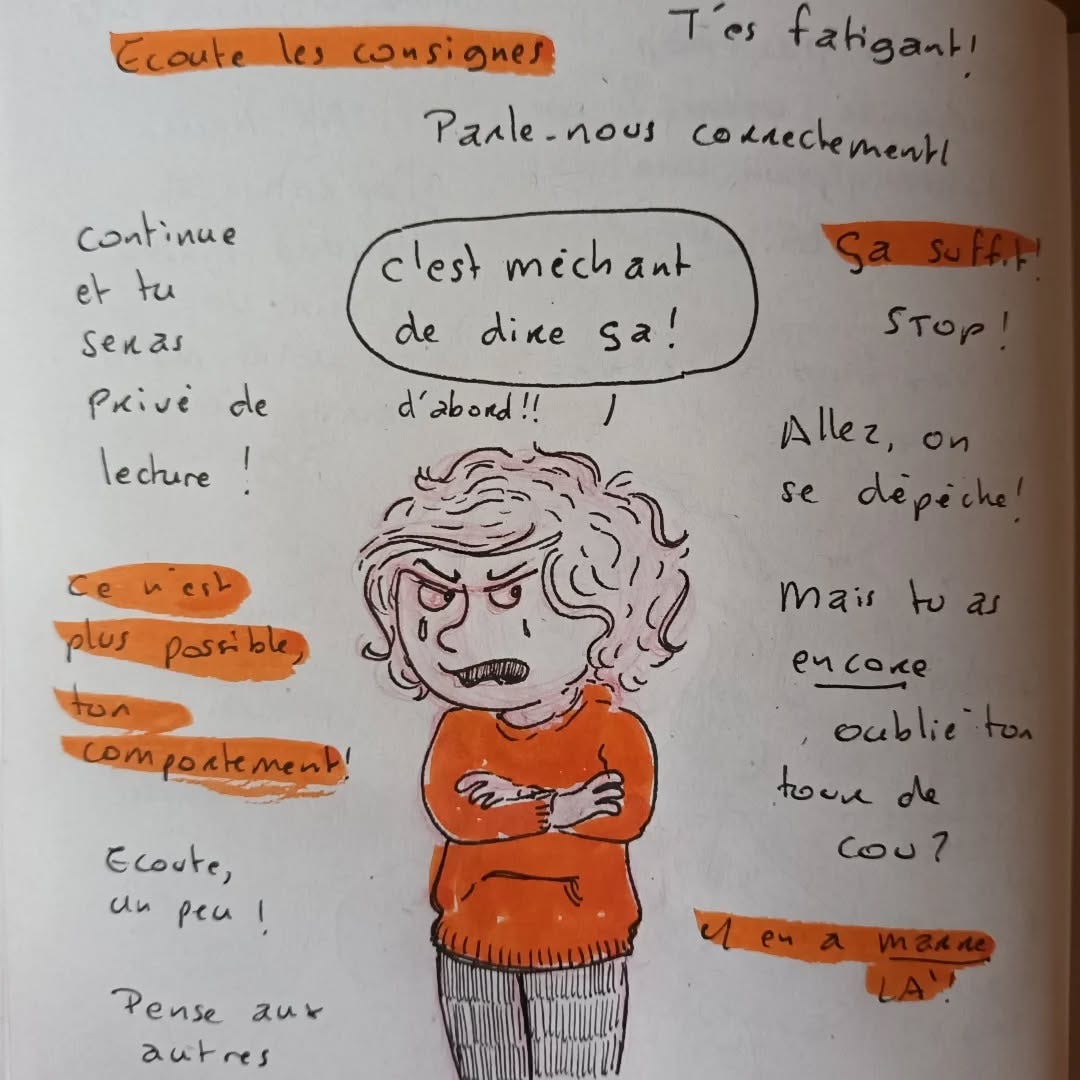 Ecoute les consignes
T'es fatigant!
Parle-nous correctement!
continue
et tu
seras
privé de
lecture !
c'est méchant
de dire ça!
d'abord!!
ça suffit!
STOP!
Allez, on
se dépêche!
Ce n'est
plus possible,
ton
comportement!
Mais tu as
encore
oublié ton
tour de
cou?
Ecoute,
un peu !
Y en a marre
LÀ!
Pense aux
autres